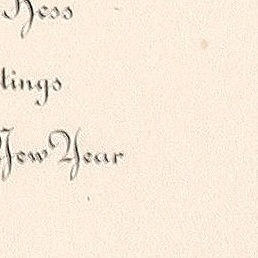 Hess
tings
New Year